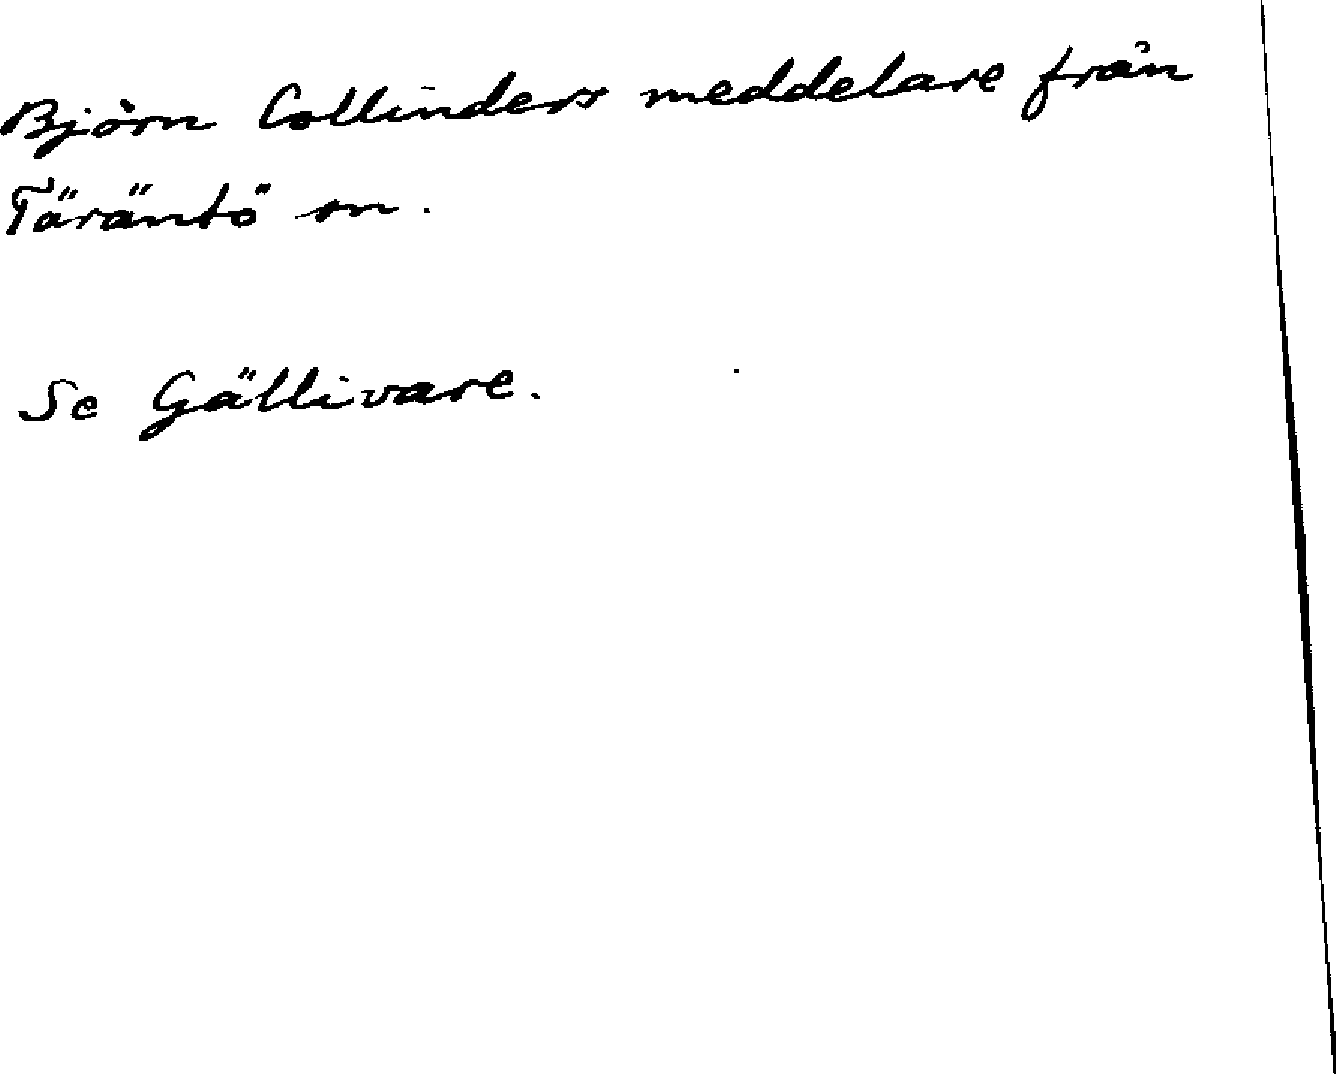 Björn Collinders meddelare från
Täräntö sn.
Se Gällivare.